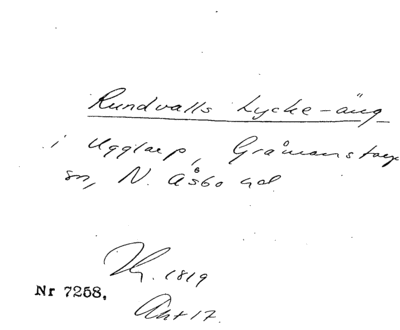 Rundvalls Lycke-äng
i Ugglarp, Gråmanstorps
sn, N. Åsbo hd.
Hr. 1819
Nr 7258.
Akt 17.